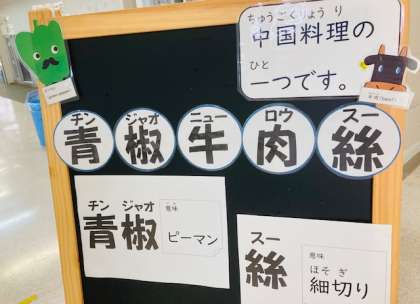 ちゅうごくりょうり
中国料理の
ひと
一つです。
チン ジャオ ニュー ロウ スー
青椒牛肉絲
チン ジャオ
青椒
意味
ピーマン
スー
絲
意味
ほそ ぎ
細切り